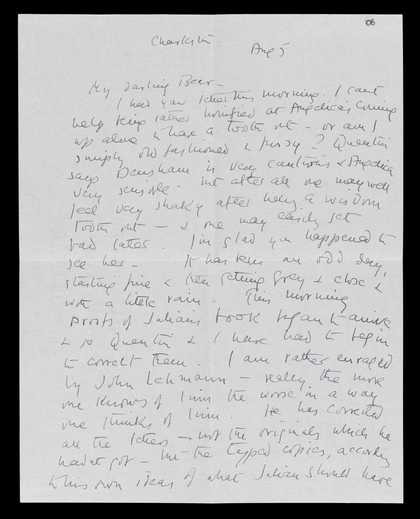 106
Charleston
Aug 5
My darling Bear –
I had your letter this morning. I can't
help being rather horrified at Angelica's coming
up alone to have a tooth out – or am I
simply old fashioned & fussy? Quentin
says Bensham is very cautious & Angelica
very sensible. But after all one may well
feel very shaky after having a wisdom
tooth out – & one may easily get
bad later. I'm glad you happened to
see her – It has been an odd day,
starting fine & then getting grey & close &
with a little rain. This morning
proofs of Julian's book began to arrive
& so Quentin & I have had to begin
to correct them. I am rather enraged
by John Lehmann – really the more
one knows of him the worse in a way
one thinks of him. He has corrected
all the letters – not the originals which he
hadn't got – but the typed copies, according
to his own ideas of what Julian should have